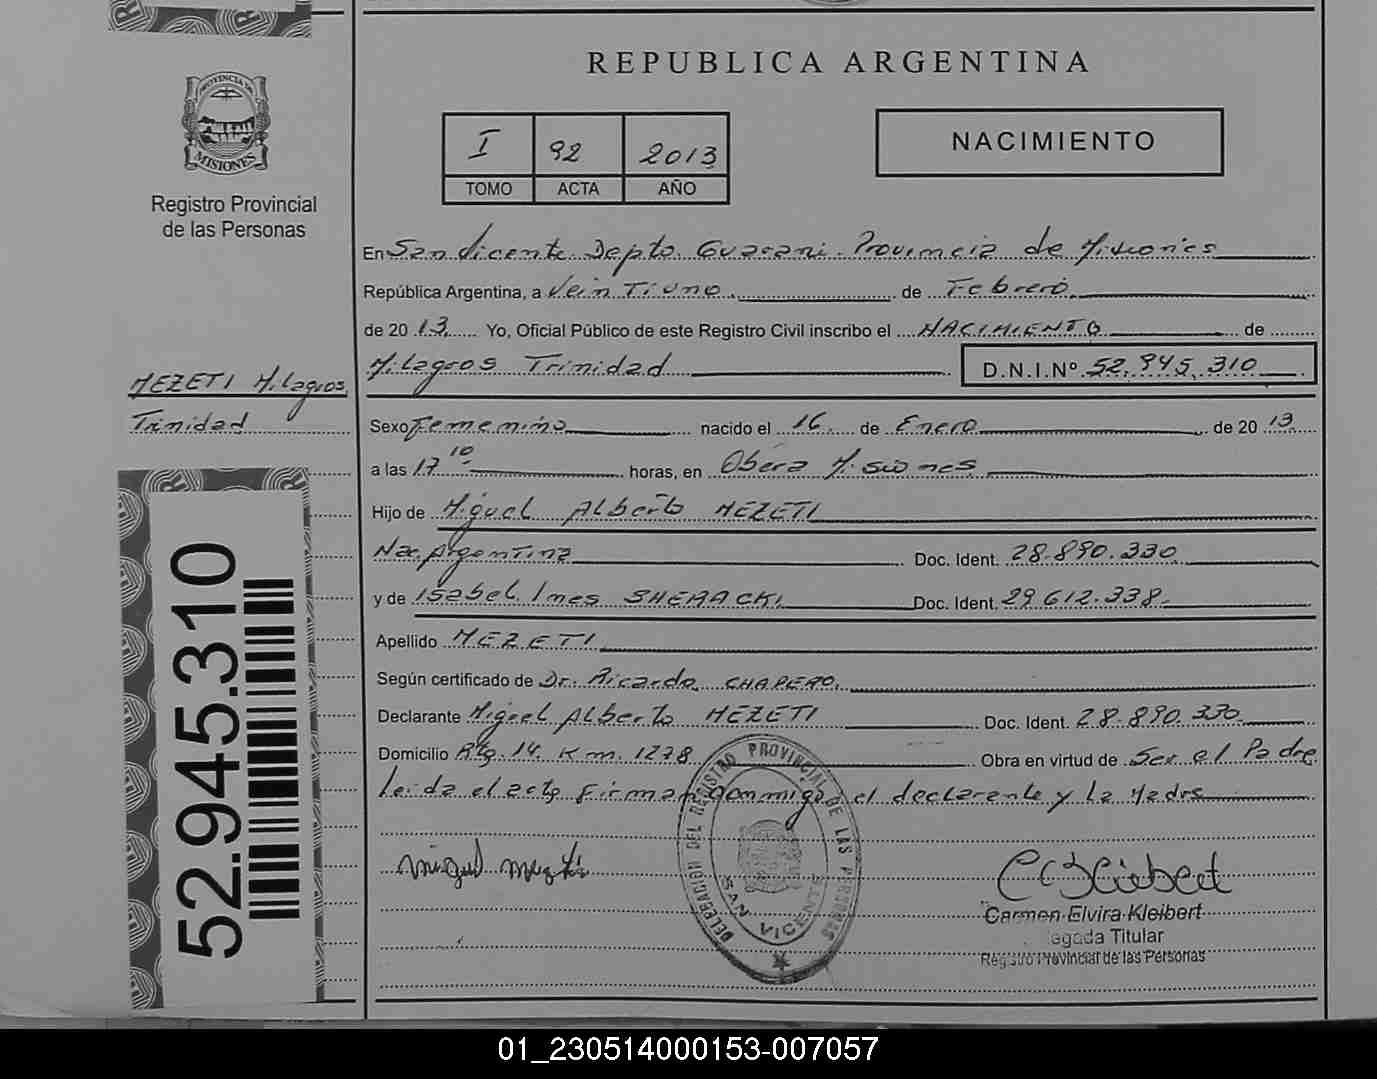 PROVINCIA DE
MISIONES
Registro Provincial
de las Personas
MEZETI Milagros
Trinidad
52.945.310
REPUBLICA ARGENTINA
I 92 2013
TOMO ACTA AÑO
NACIMIENTO
En San Vicente Depto. Guarani. Provincia de Misiones
República Argentina, a Vein Tiuno de Febrero
de 2013 Yo, Oficial Público de este Registro Civil inscribo el NACIMIENTO de
Milagros Trinidad D.N.I.Nº 52.945.310
Sexo femenino nacido el 16 de Enero de 2013
a las 17 10 horas, en Obera Misiones
Hijo de Miguel Alberto MEZETI
Nac. Argentina Doc. Ident. 28.890.330
y de Isabel Ines SHERACKI Doc. Ident. 29.612.338.
Apellido MEZETI
Según certificado de Dr. Ricardo CHAPERO.
Declarante Miguel Alberto MEZETI Doc. Ident. 28.890.330
Domicilio Rtg. 14. Km. 1278 Obra en virtud de Ser el Padre
Leida el acta firman conmigo el declarante y La Madre
DELEGACIÓN DEL REGISTRO PROVINCIAL DE LAS PERSONAS
SAN VICENTE
Carmen Elvira Kleibert
Titular
Registro Provincial de las Personas
01_230514000153-007057